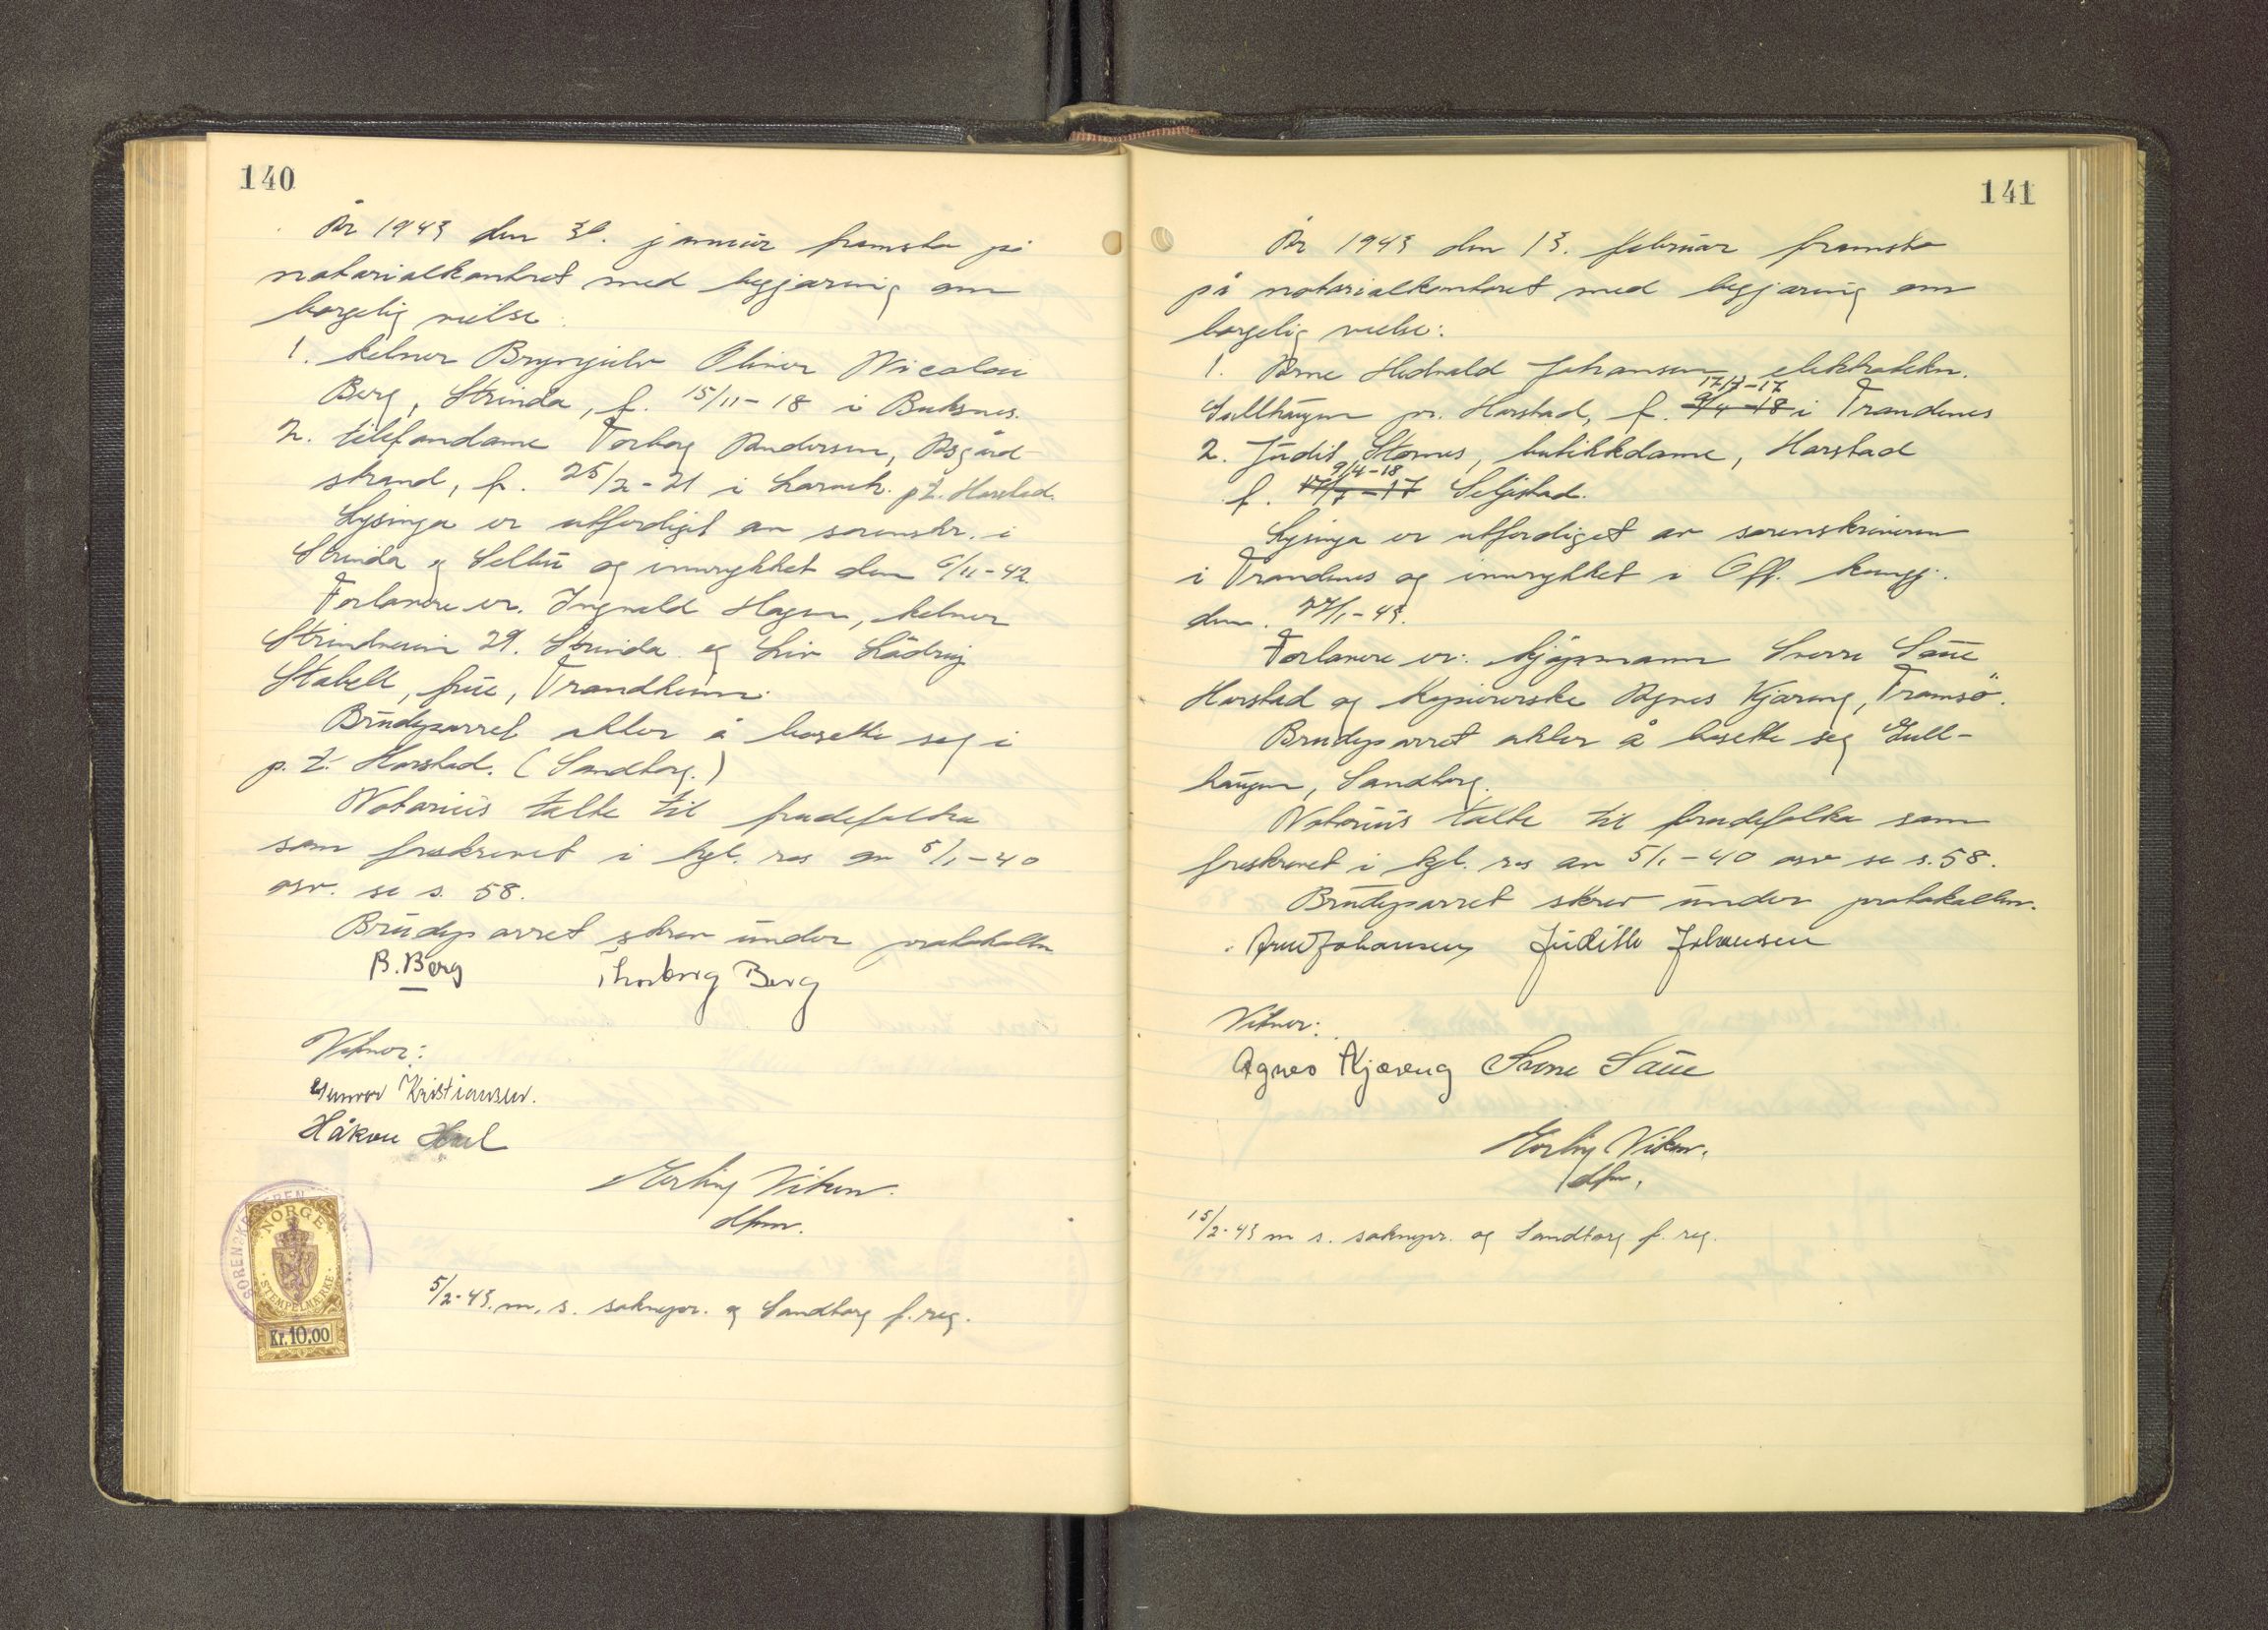 140
År 1943 den 30. januar framsto på
notarialkontret med begjæring om
borgelig vielse:
1. kelner Brynjulv Oliver Nicolai
Berg, Strinda, f. 15/11-18 i Buksnes.
2. telefondame Torborg Andersen, Åsgård-
strand, f. 25/2-21 i Larvik. p.t. Harstad.
Lysinga er utferdiget av sorenskr. i
Strinda og Selbu og innrykket den 6/11-42
Forlovere er. Ingvald Hagen, kelner
Strindveien 29. Strinda og Liv
Stabell, frue, Trondheim.
Brudeparret akter å bosette seg i
p.t. Harstad. (Sandtorg.)
Notarius talte til brudefolka
som foreskrevet i kgl. res av 5/1-40
osv. se s. 58.
Brudeparret skrev under protokollen
B. Berg Thorborg Berg
Vitner:
Gunvor Kristiansen.
Håkon
Erling Viken.
dfm.
NORGE
STEMPELMÆRKE
Kr. 10,00
5/2-43. m. s. soknepr. og Sandtorg f. reg.
141
År 1943 den 13. februar framsto
på notarialkontoret med begjæring om
borgelig vielse:
1. Arne Hedvald Johansen, elektrotekn.
17/7-17
Gullhaugen pr. Harstad, f. 9/4-18 i Trondenes
2. Judit Stornes, butikkdame, Harstad
9/4-18
f. 17/7-17 Seljestad.
Lysinga er utferdiget av sorenskriveren
i Trondenes og innrykket i Off. kunngj.
den. 27/1-43.
Forlovere er: kjøpmann Sverre Saue
Harstad og kopiererske Agnes Kjæreng, Tromsö.
Brudeparret akter å bosette seg Gull-
haugen, Sandtorg.
Notarius talte til brudefolka som
foreskrevet i kgl. res av 5/1-40 osv se s. 58.
Brudeparret skrev under protokollen.
Arne Johansen Judith Johansen
Vitner:
Agnes Kjæreng Sverre Saue
Erling Viken.
dfm.
15/2-43 m s. soknepr. og Sandtorg f. reg.